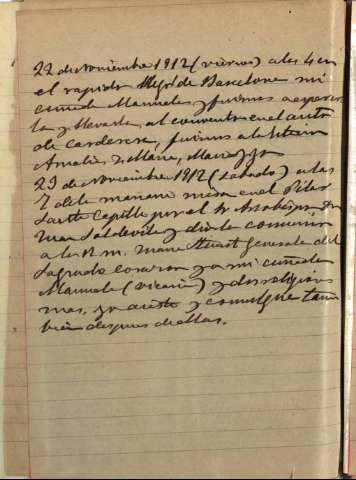 22 de Noviembre 1912 (viernes) a las 4 en
el rapido llegó de Barcelona mi
cuñada Manuela, y fuimos a esperar
la y llevarla al convento en el auto
de Cardesera, fuimos a la
Amelia, Maria, y yo
23 de Noviembre 1912 (sabado) a las
7 de la mañana misa en el Pilar
Santa Capilla por el Sr Arzobispo Dn
Juan Soldevila y dio la comunion
a la R. M. Stuart Generala del
Sagrado Corazon y a mi cuñada
Manuela (vicaria) y dos religio
mas, yo asisti y comulgue tam
bien despues de ellas.